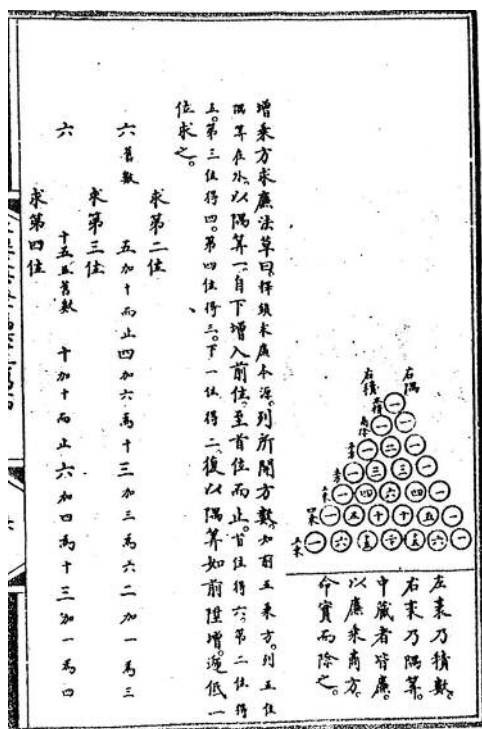 右積
右隅
一
一 一
平方 一 二 一
一 三 三 一
一 四 六 四 一
四乘 一 五 十 十 五 一
五乘 一 六 十五 二十 十五 六 一
左袤乃積數。
右袤乃隅算。
中藏者皆廉。
以廉乘商方。
命實而除之。
增乘方求廉法草曰。釋鎖求廉本源。列所開方數。如前五乘方。列五位
隅算在外。以隅算一。自下增入前位。至首位而止。首位得六。第二位得
五。第三位得四。第四位得三。下一位得二。復以隅算如前陞增。遞低一
位求之。
求第二位
六舊數 五加十而止 四加六為十 三加三為六 二加一為三
求第三位
六 十五並舊數 十加十而止 六加四為十 三加一為四
求第四位